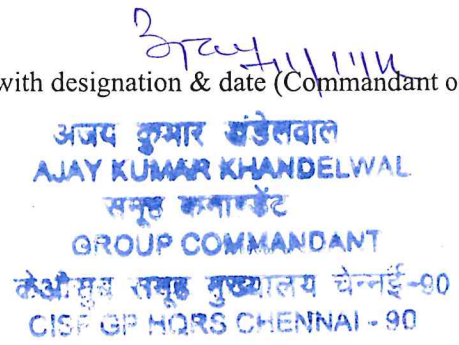 अजय 11/11/14
with designation & date (Commandant o
अजय कुमार खंडेलवाल
AJAY KUMAR KHANDELWAL
समूह कमाण्डेंट
GROUP COMMANDANT
केऔसुब समूह मुख्यालय चेन्नई-90
CISF GP HQRS CHENNAI - 90